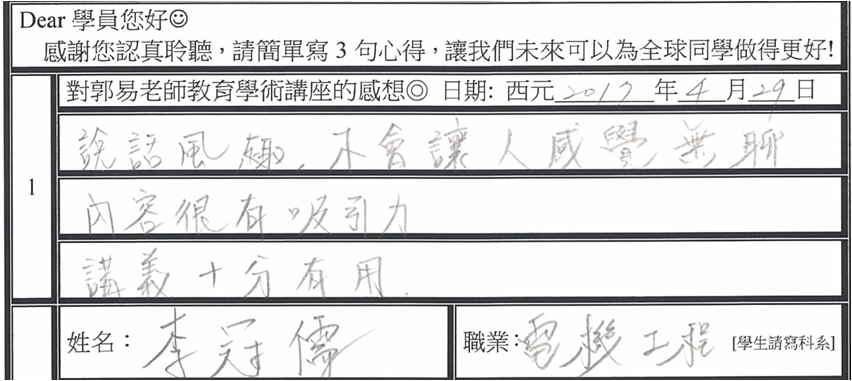 Dear 學員您好☺
感謝您認真聆聽，請簡單寫 3 句心得，讓我們未來可以為全球同學做得更好!
對郭易老師教育學術講座的感想◎ 日期: 西元 2017 年 4 月 29 日
1
說話風趣，不會讓人感覺無聊
內容很有吸引力
講義十分有用.
姓名：李冠儒
職業：電機工程 [學生請寫科系]